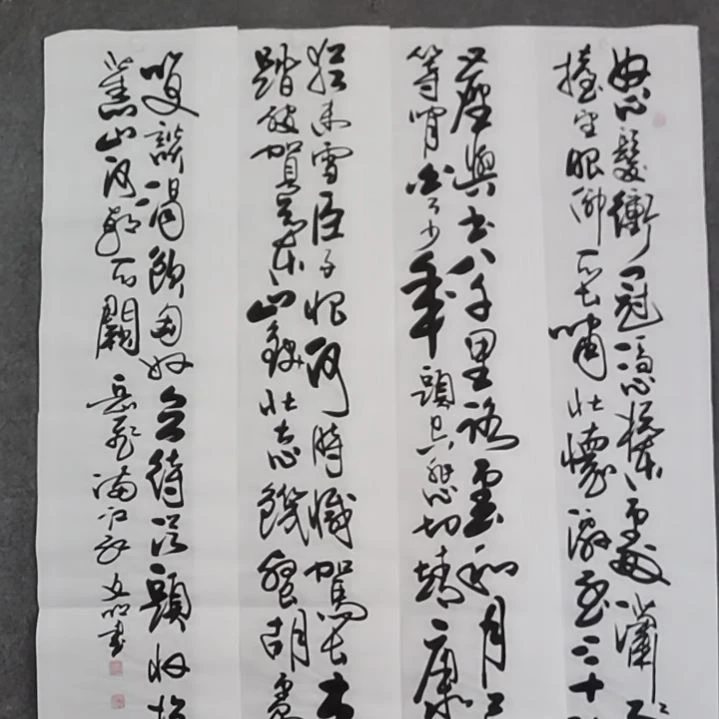 怒髮衝冠憑欄處瀟
擡望眼仰天長嘯壯懷激烈三十
塵與土八千里路雲和月
等閒白了少年頭空悲切靖康
猶未雪臣子恨何時滅駕長車
踏破賀蘭山缺壯志饑餐胡虜
笑談渴飲匈奴血待從頭收拾
舊山河朝天闕 岳飛滿江紅